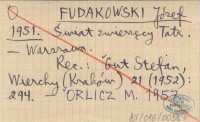 FUDAKOWSKI Józef
1951. Świat zwierzęcy Tatr.
— Warszawa.
Rec.: Gut Stefan,
Wierchy (Kraków) 21 (1952):
294. — ORLICZ M. 1957